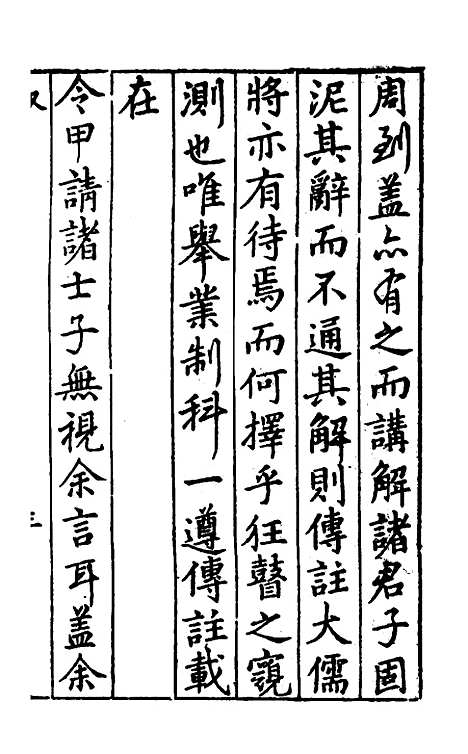 周到盖亦有之而講解諸君子固
泥其辭而不通其解則傳註大儒
將亦有待焉而何擇乎狂瞽之窺
測也唯舉業制科一遵傳註載
在
令甲請諸士子無視余言耳盖余